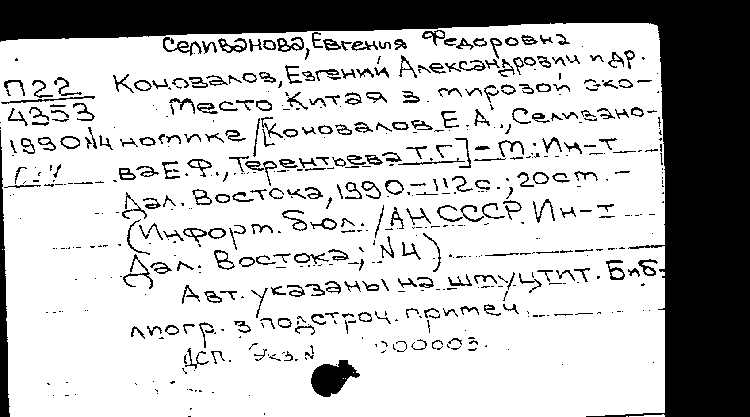 Селиванова, Евгения Федоровна
П22
4353
1990 №4
Коновалов, Евгений Александрович и др.
Место Китая в мировой эко-
номике / [Коновалов Е.А., Селивано-
ва Е.Ф., Терентьева Т.Г.] - М.: Ин-т
Дал. Востока, 1990. - 112 с.; 20 см. -
(Информ. бюл. / АН СССР. Ин-т
Дал. Востока; №4).
Авт. указаны на шмуцтит. Биб-
лиогр. в подстроч. примеч.
ДСП. Экз. № 000003.